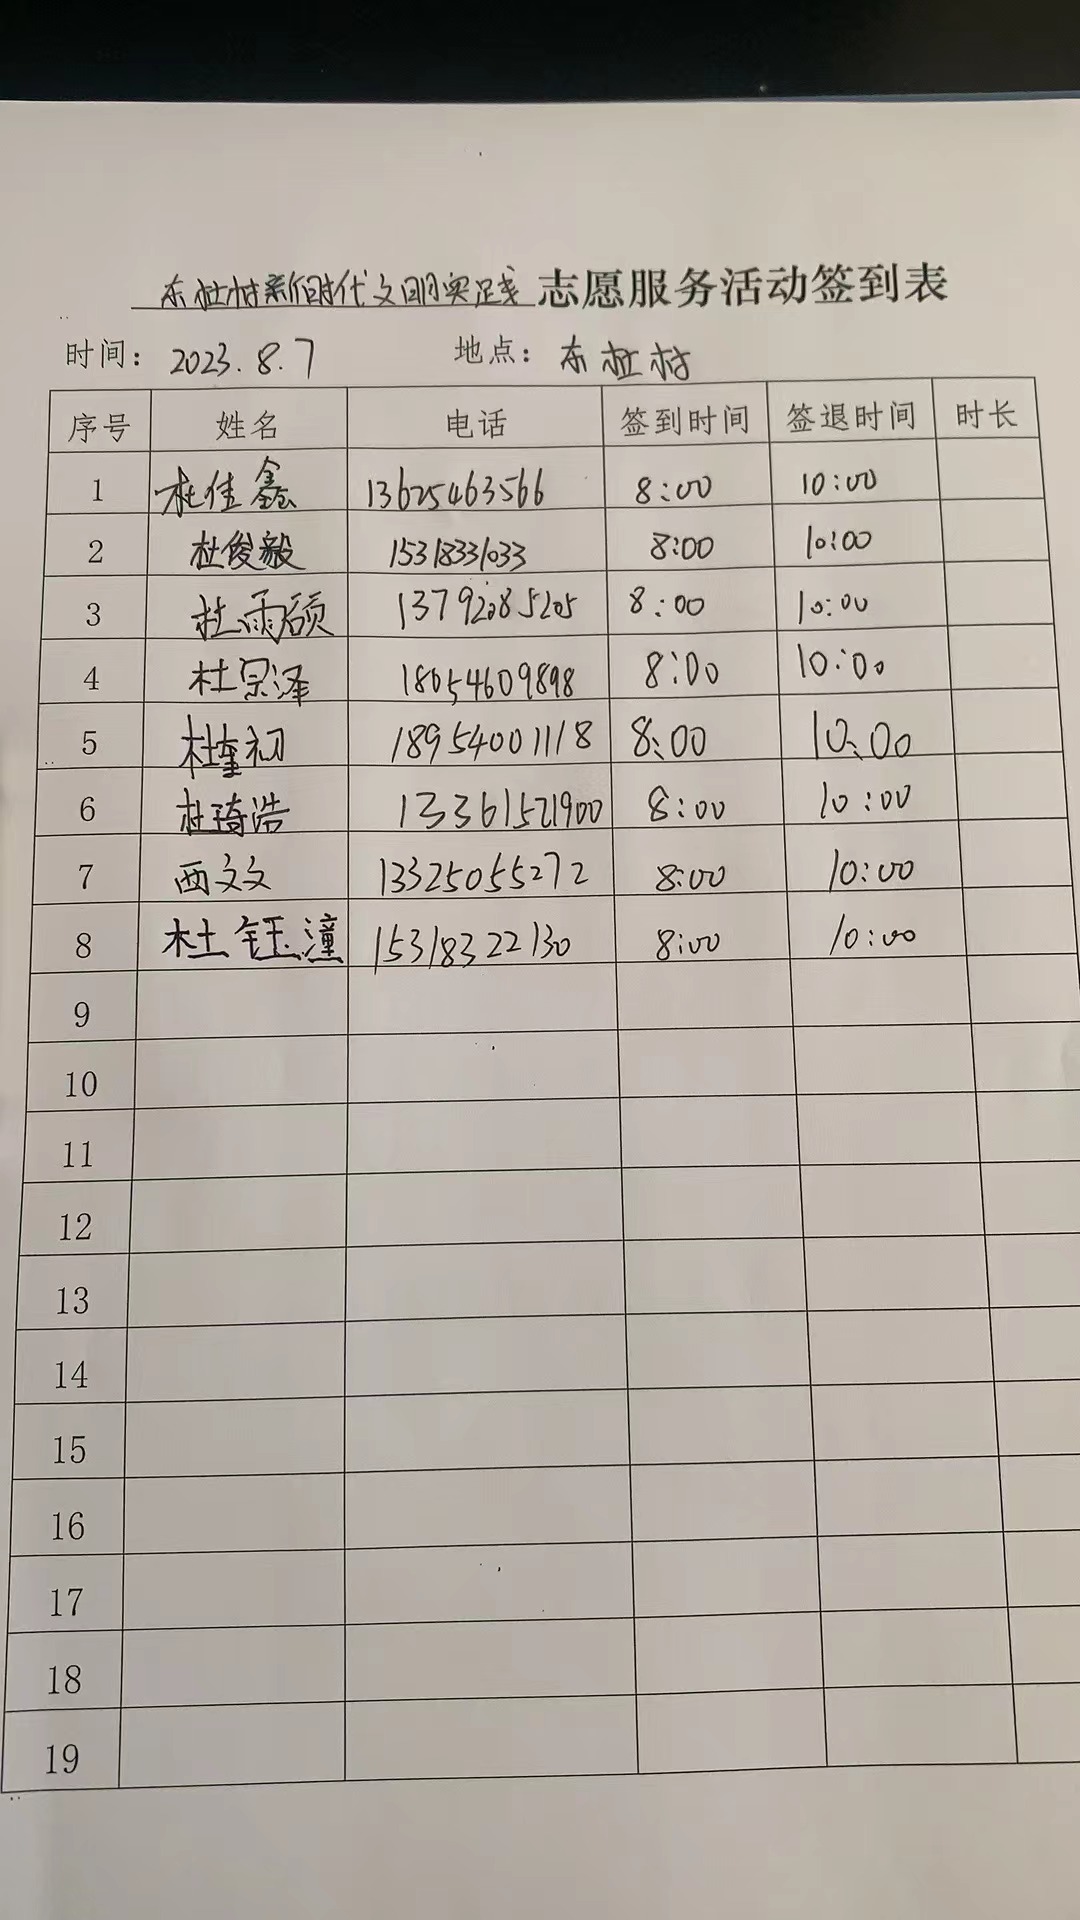 东杜村新时代文明实践 志愿服务活动签到表
时间： 2023.8.7 地点： 东杜村
序号 姓名 电话 签到时间 签退时间 时长
1 杜佳鑫 13625463566 8:00 10:00
2 杜俊毅 15318331033 8:00 10:00
3 杜雨硕 13792085205 8:00 10:00
4 杜宗泽 18654609898 8:00 10:00
5 杜奎初 18954001118 8:00 10:00
6 杜琦浩 13361521900 8:00 10:00
7 西文文 13325055272 8:00 10:00
8 杜钰潼 15318322130 8:00 10:00
9
10
11
12
13
14
15
16
17
18
19